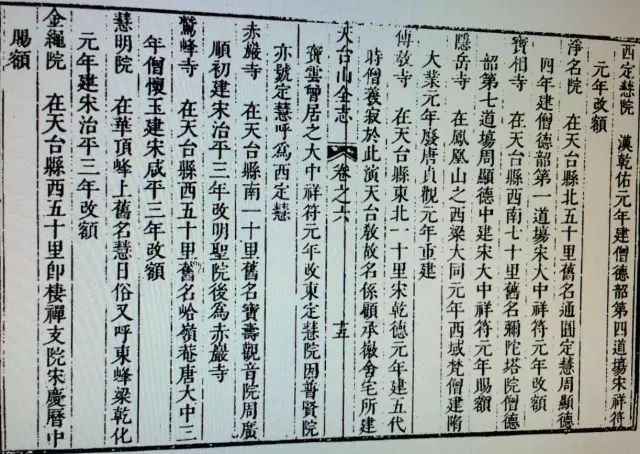 西定慧院　漢乾佑元年建僧德韶第四道場宋祥符
元年改額
淨名院　在天台縣北五十里舊名通圓定慧周顯德
四年建僧德韶第一道場宋大中祥符元年改額
寶相寺　在天台縣西南七十里舊名彌陀塔院僧德
韶第七道場周顯德中建宋大中祥符元年賜額
隱岳寺　在鳳凰山之西梁大同元年西域梵僧建隋
大業元年廢唐貞觀元年重建
傳教寺　在天台縣東北一十里宋乾德元年建五代
時僧羲寂於此演天台教故名係顧承徽舍宅所建
天台山全志　卷之六　十五
寶雲曾居之大中祥符元年改東定慧院因普賢院
亦號定慧呼為西定慧
赤巖寺　在天台縣南一十里舊名寶壽觀音院周廣
順初建宋治平三年改明聖院後為赤巖寺
鷲峰寺　在天台縣西五十里舊名峆嶺菴唐大中三
年僧懷玉建宋咸平三年改額
慧明院　在華頂峰上舊名慧日俗又呼東峰梁乾化
元年建宋治平三年改額
金繩院　在天台縣西五十里卽棲禪支院宋慶曆中
賜額